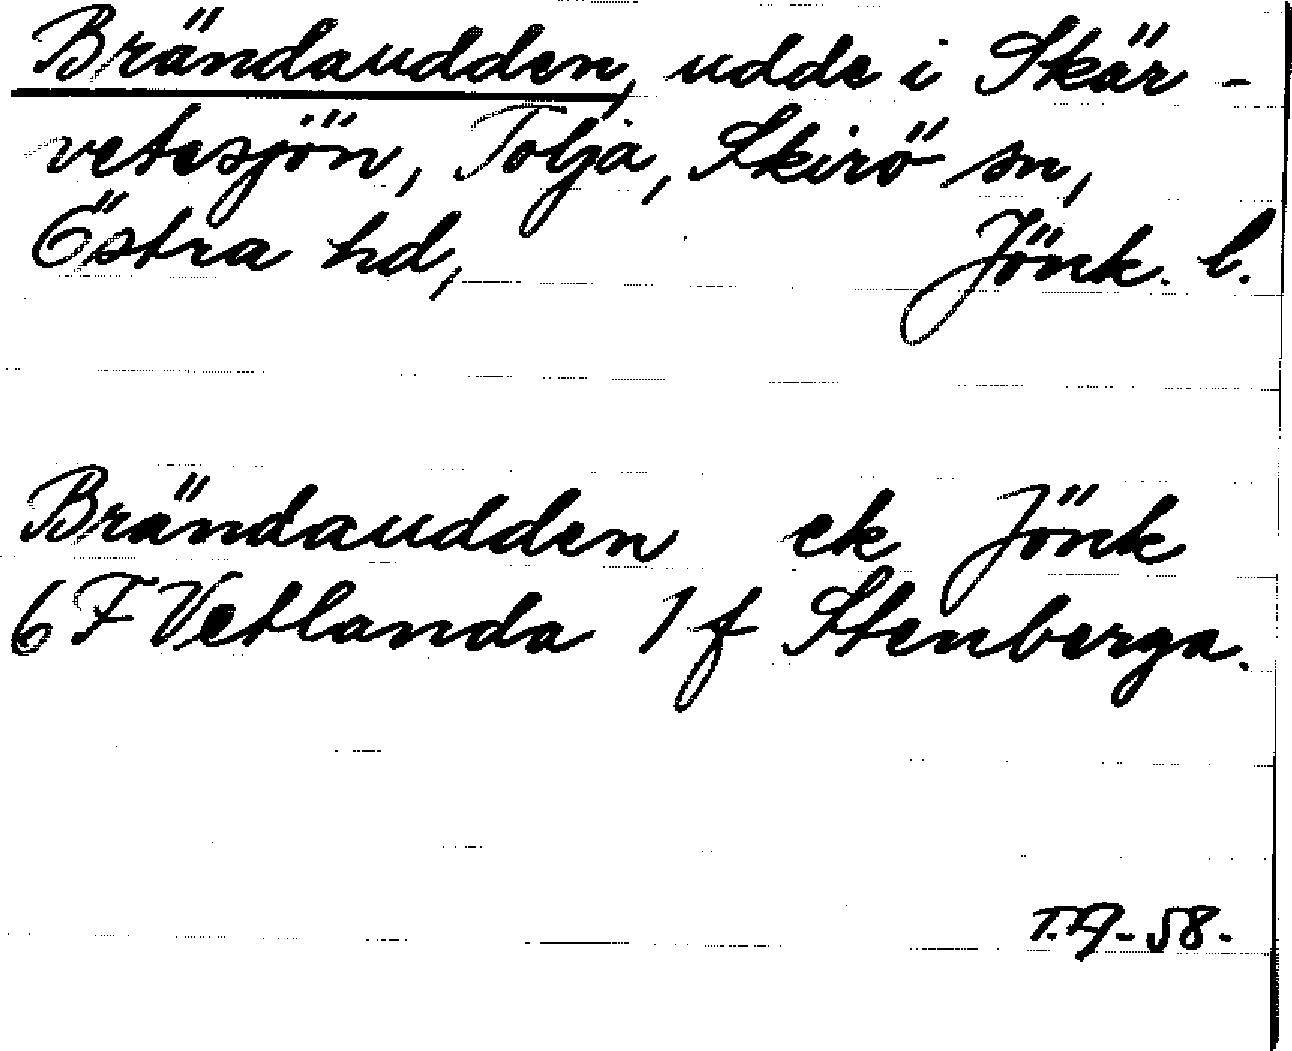 Brändaudden, udde i Skär-
vetesjön, Tolja, Skirö sn,
Östra hd, Jönk. l.
Brändaudden ek Jönk
6 F Vetlanda 1 f Stenberga.
58.